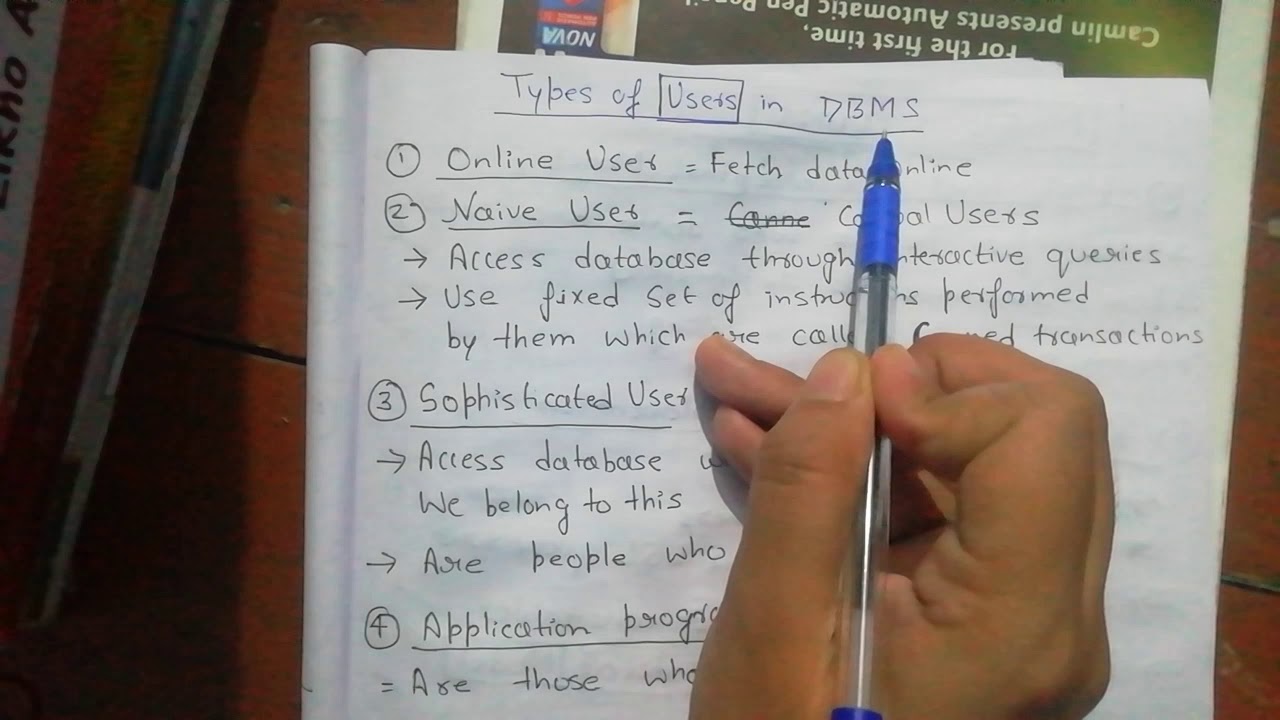 Camlin presents Automatic Pen
For the first time,
NOVA
Types of Users in DBMS
① Online User = Fetch data online
② Naive User = Users
→ Access database through interactive queries
→ Use fixed set of instructions performed
by them which are called transactions
③ Sophisticated User
→ Access database
We belong to this
→ Are people who
④ Application
= Are those who